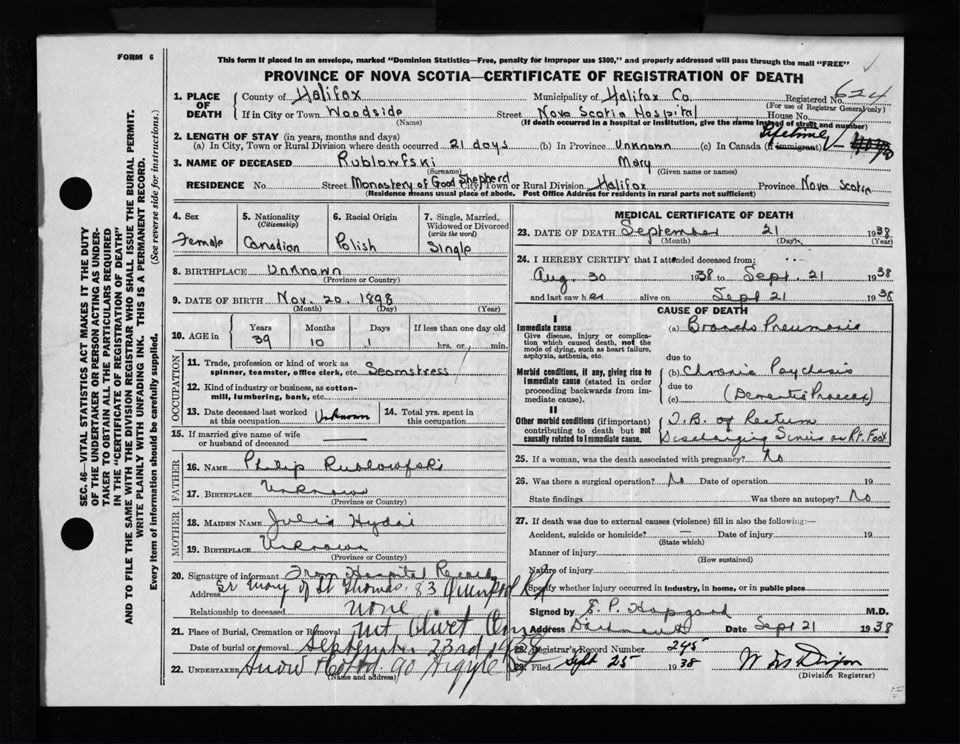 FORM 6
This form if placed in an envelope, marked "Dominion Statistics—Free, penalty for improper use $300," and properly addressed will pass through the mail "FREE"
PROVINCE OF NOVA SCOTIA—CERTIFICATE OF REGISTRATION OF DEATH
SEC. 46—VITAL STATISTICS ACT MAKES IT THE DUTY
OF THE UNDERTAKER OR PERSON ACTING AS UNDER-
TAKER TO OBTAIN ALL THE PARTICULARS REQUIRED
IN THE "CERTIFICATE OF REGISTRATION OF DEATH"
AND TO FILE THE SAME WITH THE DIVISION REGISTRAR WHO SHALL ISSUE THE BURIAL PERMIT.
WRITE PLAINLY WITH UNFADING INK. THIS IS A PERMANENT RECORD.
Every item of information should be carefully supplied. (See reverse side for instructions.)
1. PLACE OF DEATH County of Halifax Municipality of Halifax Co. Registered No. 624
(For use of Registrar General only)
If in City or Town Woodside Street Nova Scotia Hospital House No.
(Name) (If death occurred in a hospital or institution, give the name instead of street and number)
2. LENGTH OF STAY (in years, months and days) Lifetime
(a) In City, Town or Rural Division where death occurred 21 days (b) In Province Unknown (c) In Canada (if immigrant)
3. NAME OF DECEASED Rublowfski Mary
(Surname) (Given name or names)
RESIDENCE No. Street Monastery of Good Shepherd City, Town or Rural Division Halifax Province Nova Scotia
(Residence means usual place of abode. Post Office Address for residents in rural parts not sufficient)
4. Sex Female
5. Nationality (Citizenship) Canadian
6. Racial Origin Polish
7. Single, Married, Widowed or Divorced (write the word) Single
8. BIRTHPLACE Unknown
(Province or Country)
9. DATE OF BIRTH Nov. 20. 1898
(Month) (Day) (Year)
10. AGE in Years 39 Months 10 Days 1 If less than one day old
hrs. or min.
OCCUPATION
11. Trade, profession or kind of work as
spinner, teamster, office clerk, etc. Seamstress
12. Kind of industry or business, as cotton-
mill, lumbering, bank, etc.
13. Date deceased last worked at this occupation Unknown 14. Total yrs. spent in this occupation
15. If married give name of wife
or husband of deceased
FATHER
16. NAME Philip Rublowfski
17. BIRTHPLACE Unknown
(Province or Country)
MOTHER
18. MAIDEN NAME Julia Hydai
19. BIRTHPLACE Unknown
(Province or Country)
20. Signature of informant From Hospital Record
Address Sr Mary of St Thomas. 83 Quinpool Rd
Relationship to deceased none
21. Place of Burial, Cremation or Removal Mt Olivet Cem
Date of burial or removal September 23rd 1938
22. UNDERTAKER Snow & Co Ltd. 90 Argyle St
(Name and address)
MEDICAL CERTIFICATE OF DEATH
23. DATE OF DEATH September 21 1938
(Month) (Day) (Year)
24. I HEREBY CERTIFY that I attended deceased from:
Aug. 30 1938 to Sept. 21 1938
and last saw her alive on Sept 21 1938
CAUSE OF DEATH
I
Immediate cause (a) Broncho Pneumonia
Give disease, injury or complica-
tion which caused death, not the
mode of dying, such as heart failure,
asphyxia, asthenia, etc.
due to
Morbid conditions, if any, giving rise to
immediate cause (stated in order
proceeding backwards from im-
mediate cause).
(b) Chronic Psychosis
due to
(c) (Dementia Praecox)
II
Other morbid conditions (if important)
contributing to death but not
causally related to immediate cause.
T.B. of Rectum
Discharging Sinus on Rt. Foot
25. If a woman, was the death associated with pregnancy? No
26. Was there a surgical operation? No Date of operation 19
State findings Was there an autopsy? No
27. If death was due to external causes (violence) fill in also the following:—
Accident, suicide or homicide? — Date of injury 19
(State which)
Manner of injury
(How sustained)
Nature of injury
Specify whether injury occurred in industry, in home, or in public place
Signed by E. P. Hapgood M.D.
Address Dartmouth Date Sept 21 1938
28. Registrar's Record Number 245
29. Filed Sept 25 1938
(Division Registrar)